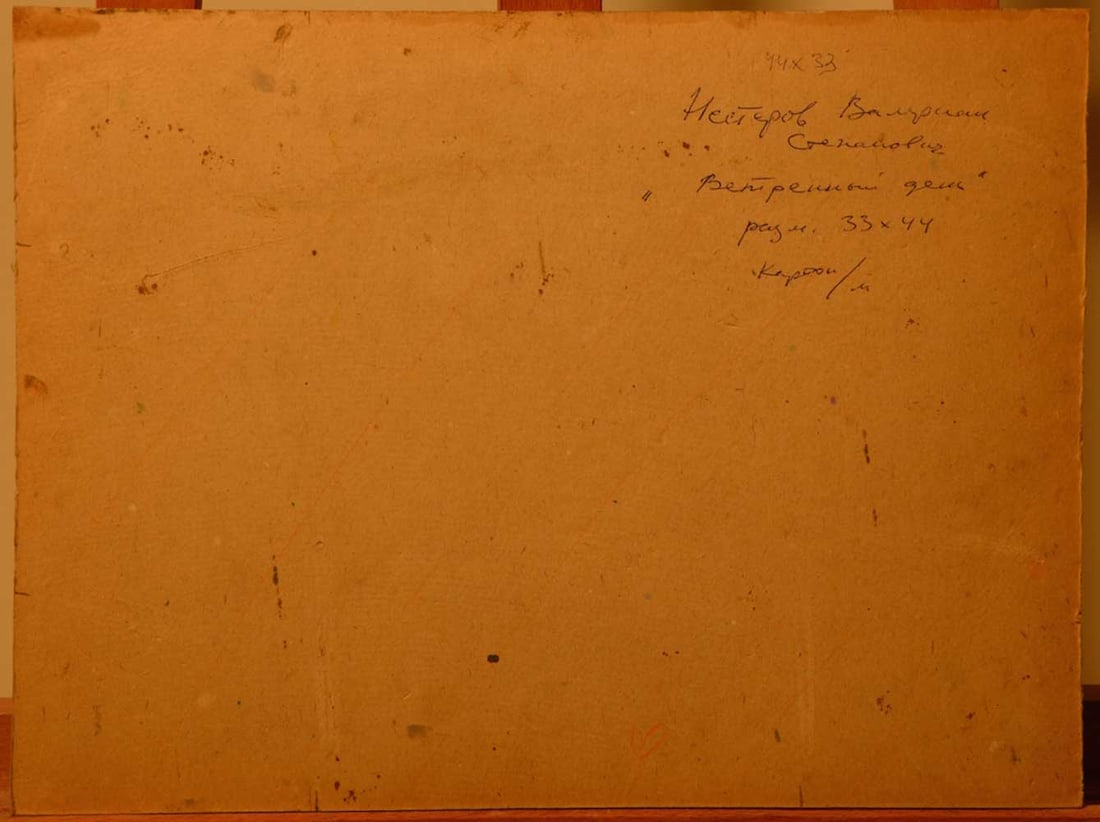 44х33
Нестеров Валериан
Степанович
"Ветренный день"
разм. 33х44
Картон/м